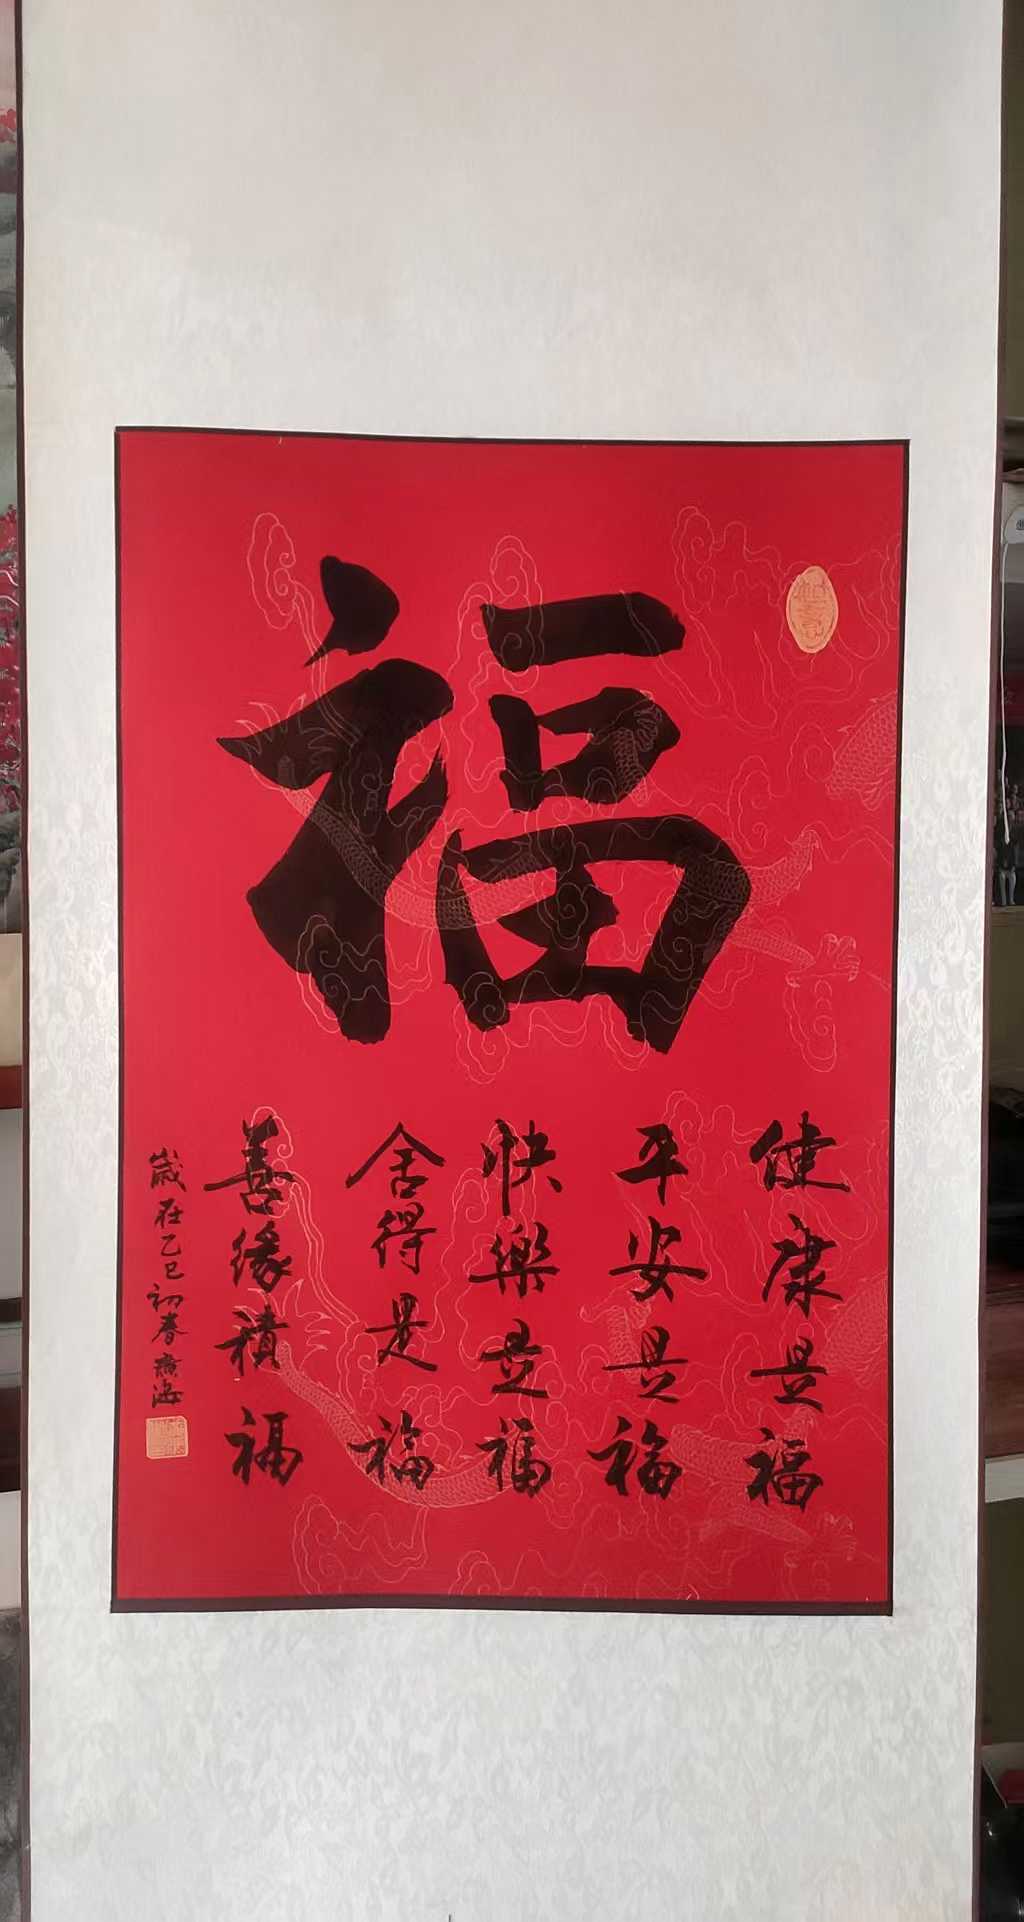 福
健康是福
平安是福
快樂是福
舍得是福
善缘積福
歲在乙巳初春